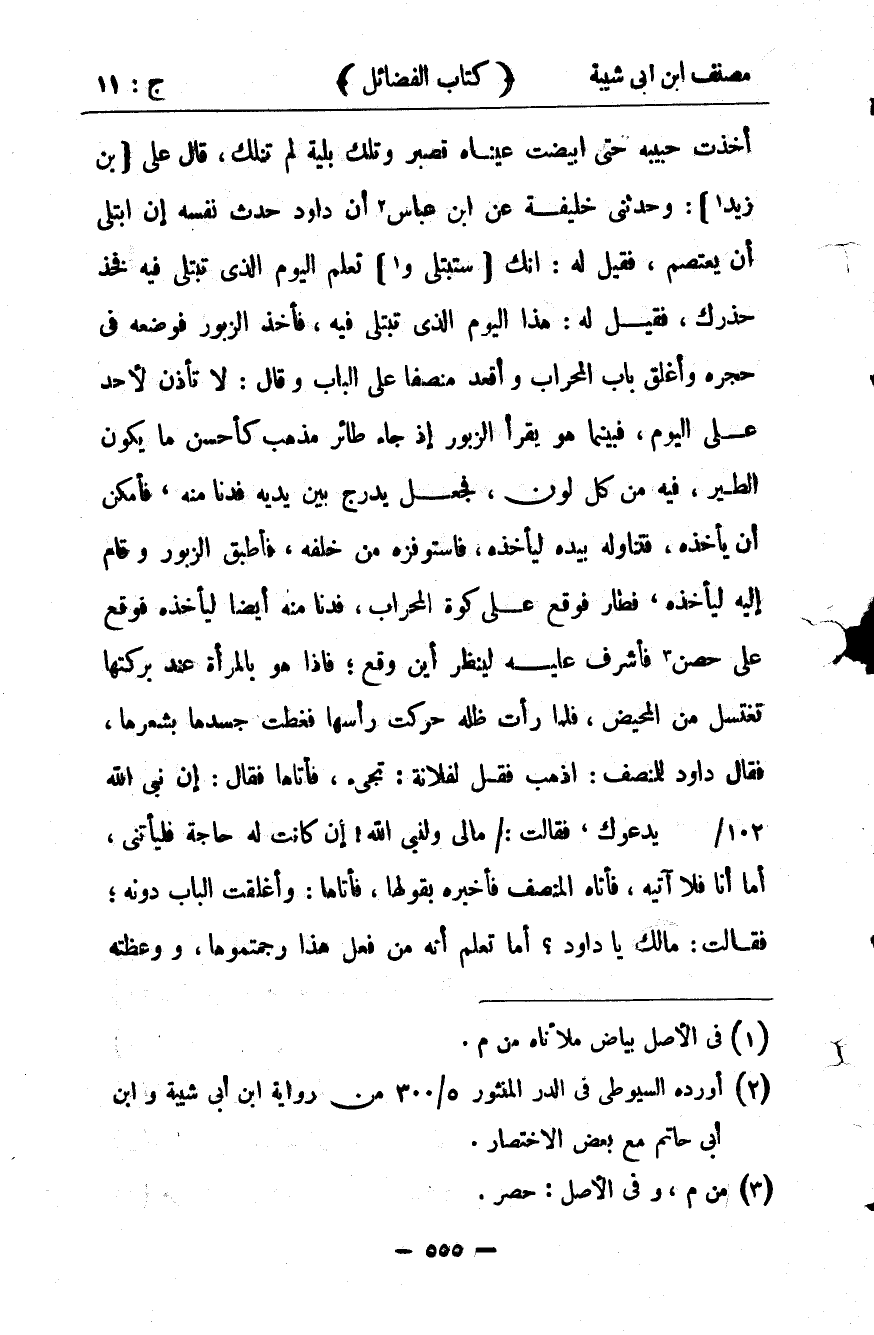 مصنف ابن ابى شيبة ﴿ كتاب الفضائل ﴾ ج : ١١
أخذت حبيبه حتى ابيضت عيناه فصبر وتلك بلية لم تنلك ، قال على [ بن
زيد١ ] : وحدثنى خليفة عن ابن عباس٢ أن داود حدث نفسه إن ابتلى
أن يعتصم ، فقيل له : انك [ ستبتلى و١ ] تعلم اليوم الذى تبتلى فيه فخذ
حذرك ، فقيل له : هذا اليوم الذى تبتلى فيه ، فأخذ الزبور فوضعه فى
حجره وأغلق باب المحراب و أقعد منصفا على الباب و قال : لا تأذن لأحد
على اليوم ، فبينما هو يقرأ الزبور إذ جاء طائر مذهب كأحسن ما يكون
الطير ، فيه من كل لون ، فجعل يدرج بين يديه فدنا منه ، فأمكن
أن يأخذه ، فتناوله بيده ليأخذه ، فاستوفزه من خلفه ، فأطبق الزبور و قام
إليه ليأخذه ، فطار فوقع على كوة المحراب ، فدنا منه أيضا ليأخذه فوقع
على حصن٣ فأشرف عليه لينظر أين وقع ؛ فاذا هو بالمرأة عند بركتها
تغتسل من المحيض ، فلما رأت ظله حركت رأسها فغطت جسدها بشعرها ،
فقال داود للنصف : اذهب فقل لفلانة : تجىء ، فأتاها فقال : إن نبى الله
١٠٢/ يدعوك ، فقالت : / مالى ولنبى الله ! إن كانت له حاجة فليأتنى ،
أما أنا فلا آتيه ، فأتاه المنصف فأخبره بقولها ، فأتاها : وأغلقت الباب دونه ؛
فقالت : مالك يا داود ؟ أما تعلم أنه من فعل هذا رجمتموها ، و وعظته
(١) فى الأصل بياض ملأناه من م .
(٢) أورده السيوطى فى الدر المنثور ٥/٣٠٠ من رواية ابن أبى شيبة و ابن
أبى حاتم مع بعض الاختصار .
(٣) من م ، و فى الأصل : حصر .
— ٥٥٥ —